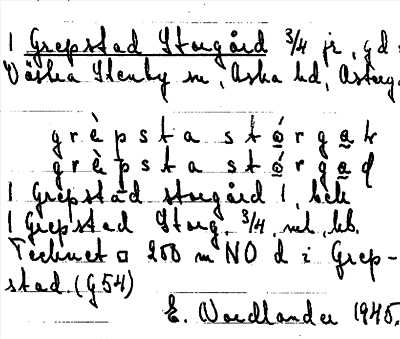 1 Grepstad Storgård 3/4 jr, gd
Västra Stenby sn, Aska hd, Österg.
grèpsta stórgaʈ
grèpsta stórgaɖ
1 Grepstad storgård 1, beb
1 Grepstad Storg. 3/4, mtl, kb.
Tecknet □ 200 m NO d i Grep-
stad. (G54)
E. Nordlander 1945.